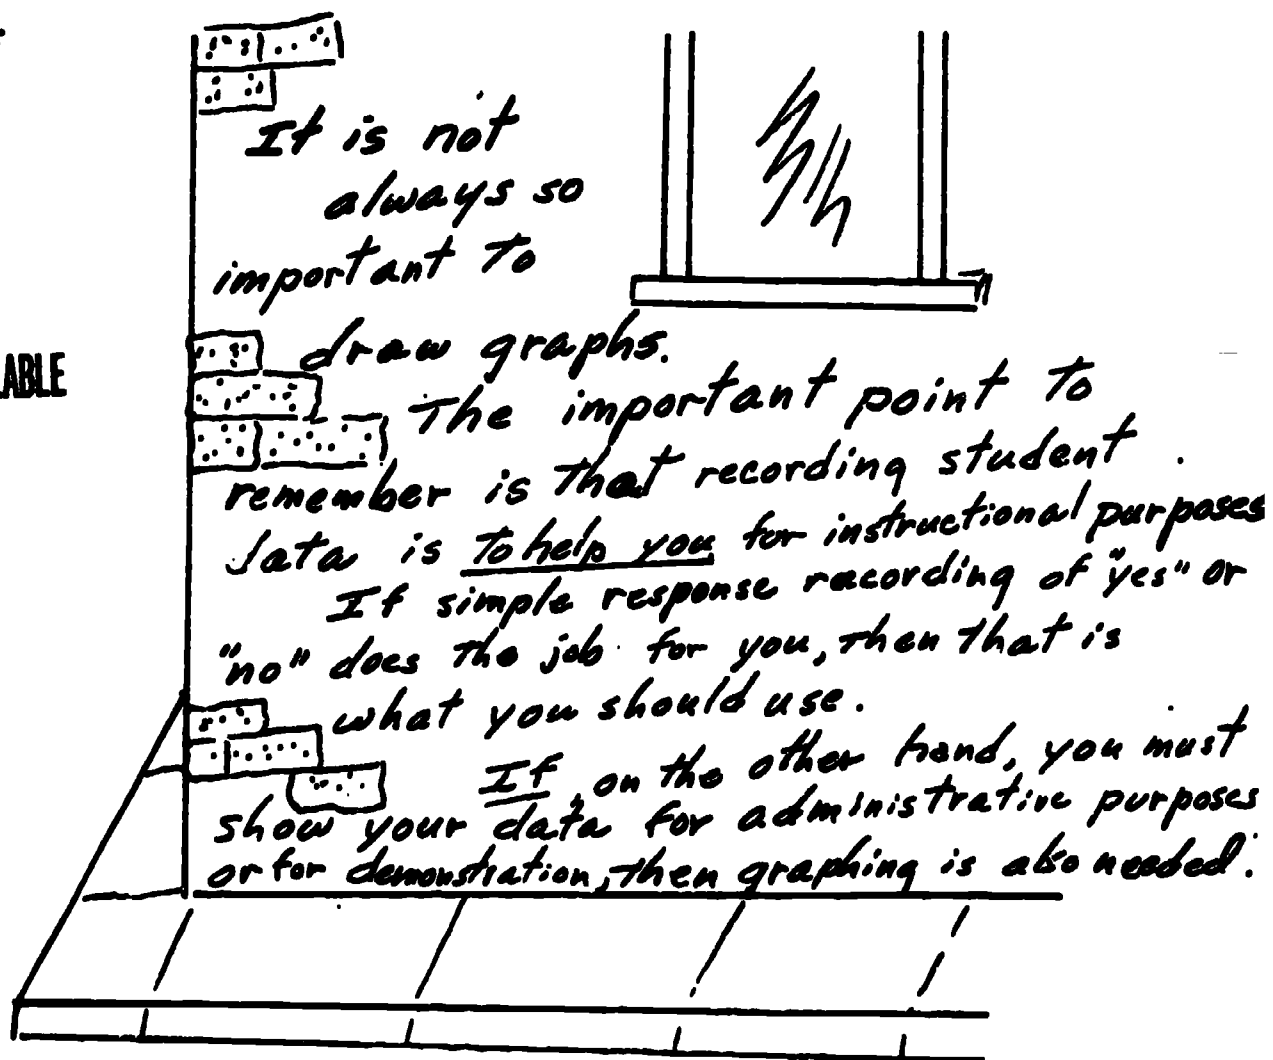 It is not
always so
important to
draw graphs.
LABLE
The important point to
remember is that recording student
data is to help you for instructional purposes
If simple response recording of "yes" or
"no" does the job for you, then that is
what you should use.
If, on the other hand, you must
show your data for administrative purposes
or for demonstration, then graphing is also needed.